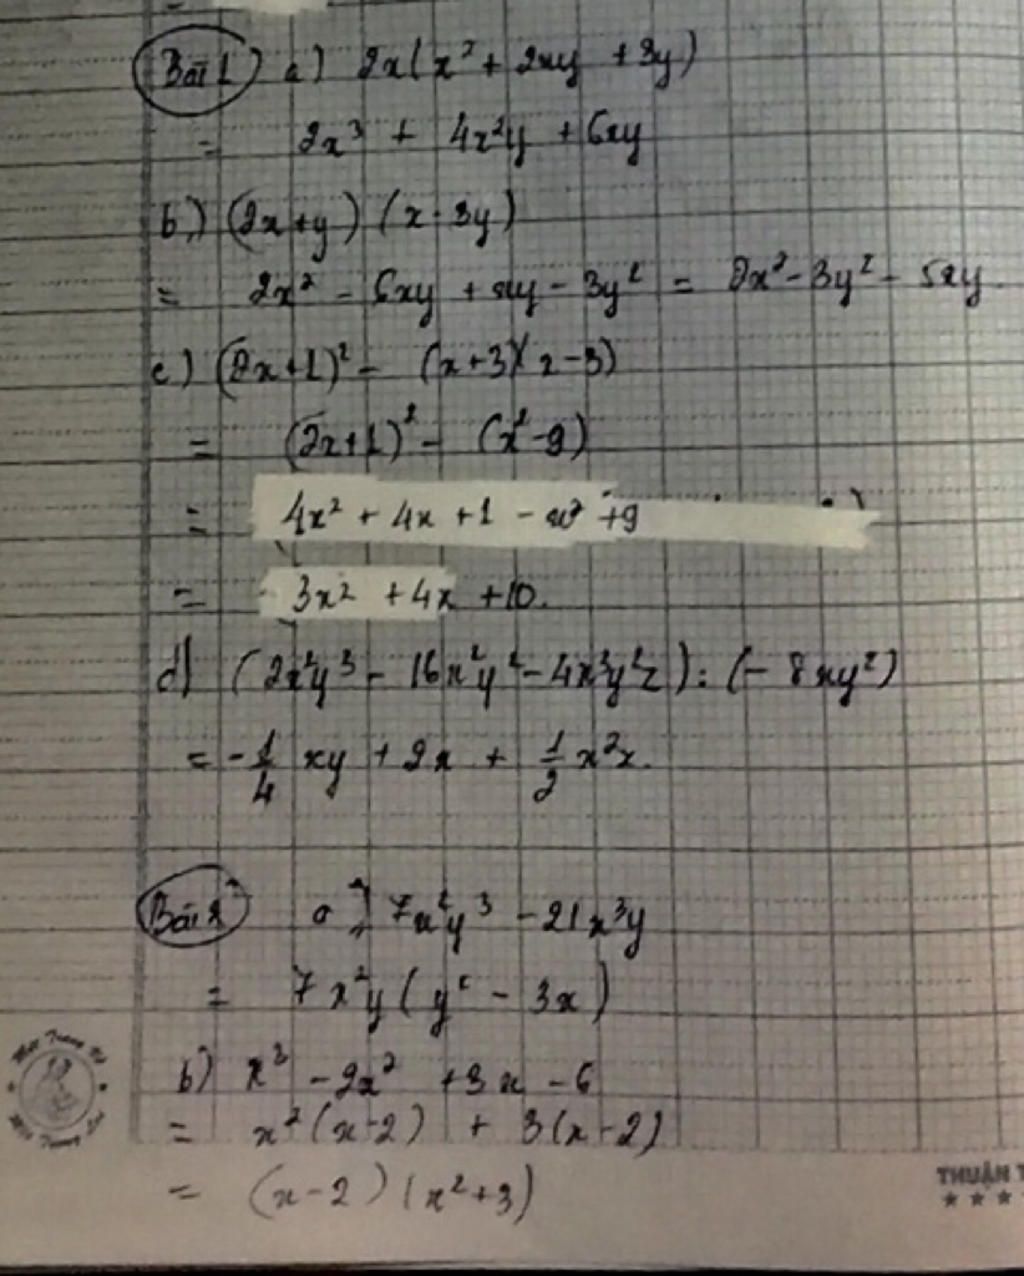 Bài 1 a) 2x(x² + 2xy + 3y)
= 2x³ + 4x²y + 6xy
b) (2x+y) (x-3y)
= 2x² - 6xy + xy - 3y² = 2x² - 3y² - 5xy.
c) (2x+1)² - (x+3)(x-3)
= (2x+1)² - (x²-9)
= 4x² + 4x + 1 - x² + 9
= 3x² + 4x + 10.
d) (2x²y³ - 16x²y² - 4x³y²z) : (- 8xy²)
= -1/4 xy + 2x + 1/2 x²x.
Bài 2 a) 7x²y³ - 21x³y
= 7x²y (y² - 3x)
b) x³ - 2x² + 3x - 6
= x² (x-2) + 3(x-2)
= (x-2) (x²+3)
THUẬN T